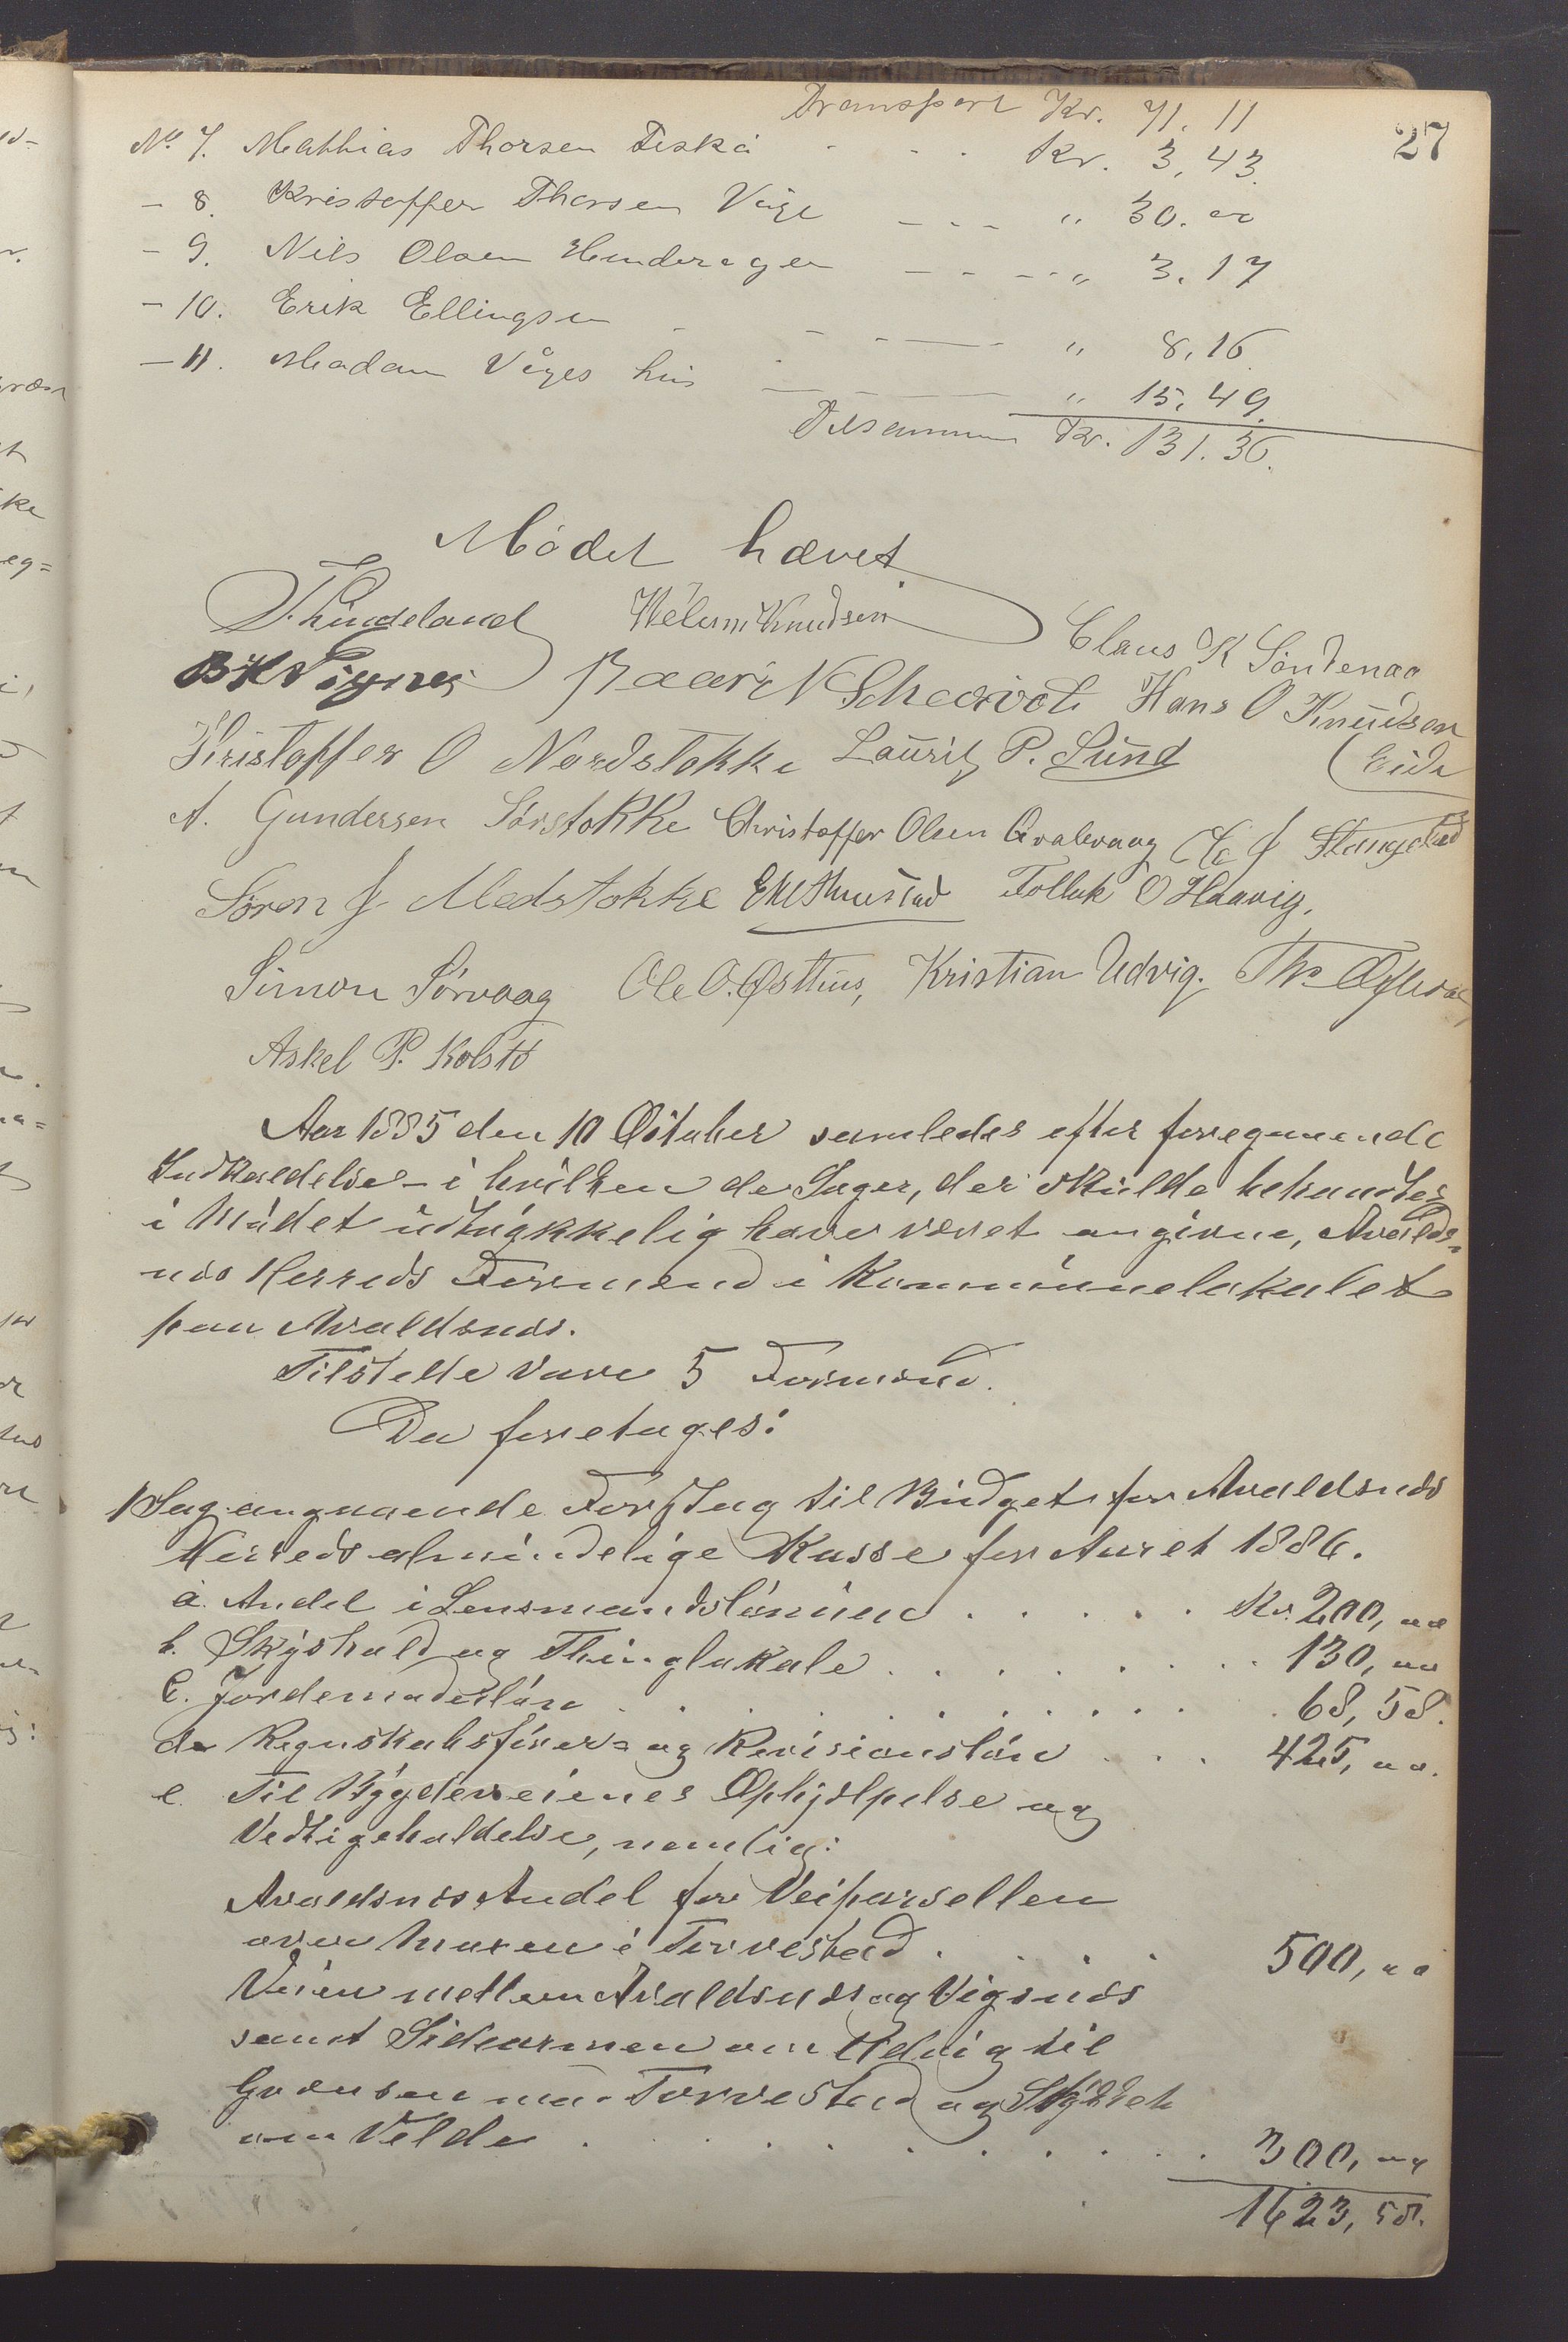 Transport Kr. 71. 11
27
No 7. Mathias Thorsen Eska - - - Kr. 3,43.
- 8. Kristoffer Thorsen Våge - - - " 30. 00
- 9. Nils Olsen Hinderager - - - - " 3. 17
- 10. Erik Ellingsen - - - - " 8,16
- 11. Madam Våges hus - - - " 15,49.
Tilsammen Kr. 131. 36.
Mödet hævet.
Knudsen Claus K Söndenaa
Schaarvot Hans O Knudsen
Kristoffer O Nordstokke Lauritz P. Sund (Eide
A. Gundersen Sörstokke Christoffer Olsen Qvalevaag J Stangeland
Sören J Medstokke Folluk O Haavig.
Simon Sörvaag Ole O. Østhus, Kristian Udvig. Ths
Askel P. Kolstö
Aar 1885 den 10 Oktober samledes efter foregaaende
Indkaldelse - i hvilken de Sager, der skulde behandles
i Mödet udtrykkelig have været angivne, Avalds-
næs Herreds Formænd i Kommunelokalet
paa Avaldsnæs.
Tilstede vare 5 Formænd.
Da foretages:
1 Sag angaaende Forslag til Budget for Avaldsnæs
Herreds almindelige Kasse for Aaret 1886.
a. Andel i Lensmandslönnen . . . . . Kr. 200, 00
b. Skyshold og Thinglokale . . . . . . . . 130, 00
c. Jordemoderlön . . . . . . . . . . 68, 58.
d. Regnskabsförer- og Revisionslön . . . 425, 00.
e. Til Bygdeveienes Ophjælpelse og
Vedligeholdelse, nemlig:
Avaldsnæs Andel for Veiparsellen
over Myren i Torvestad . . . . 500, 00
Veien mellem Avaldsnæs og Vigsnæs
samt Sidearmen om Udvig til
Grændsen mod Torvestad og Stykket
om Velde . . . . . . . . . 300, 00
1623, 58.